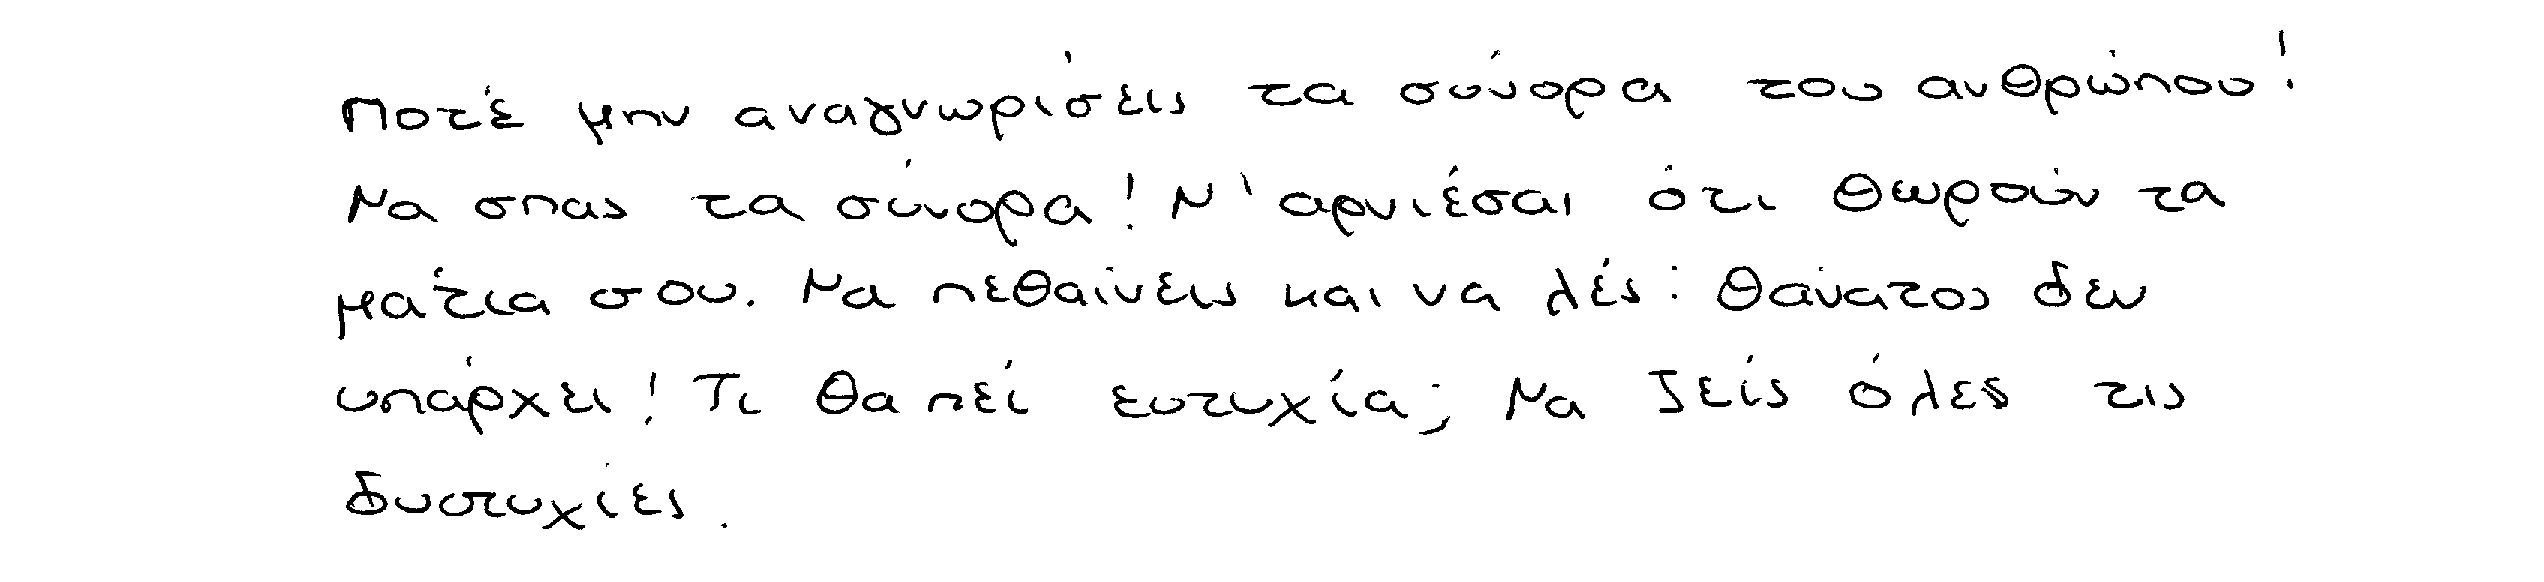 Ποτέ μην αναγνωρίσεις τα σύνορα του ανθρώπου!
Να σπας τα σύνορα! Ν' αρνιέσαι ότι θωρούν τα
μάτια σου. Να πεθαίνεις και να λές: Θάνατος δεν
υπάρχει! Τι θα πεί ευτυχία; Να ζείς όλες τις
δυστυχίες.